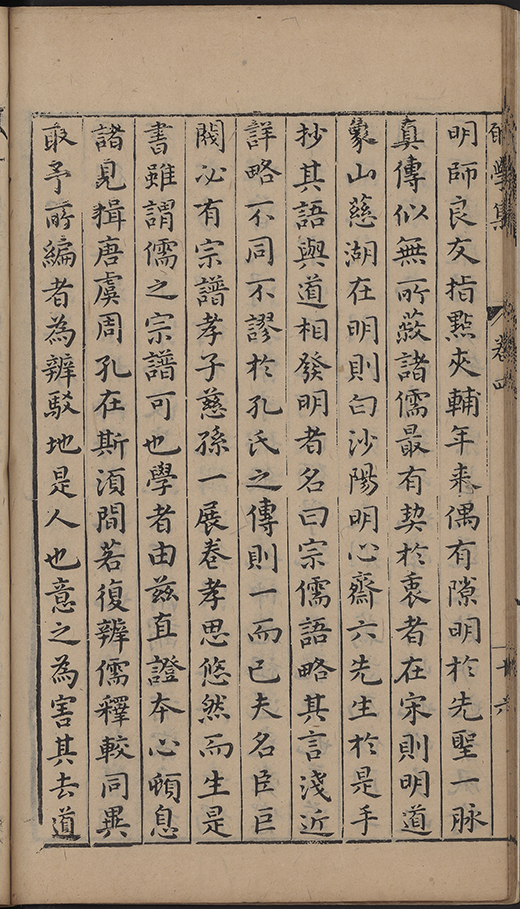 學集 卷四 十六
明師良友指㸃夾輔年来偶有隙明於先聖一脉
真傳似無所蔽諸儒最有契於衷者在宋則明道
象山慈湖在明則白沙陽明心齋六先生於是手
抄其語與道相發明者名曰宗儒語略其言淺近
詳略不同不謬於孔氏之傳則一而已夫名臣巨
閥必有宗譜孝子慈孫一展卷孝思悠然而生是
書雖謂儒之宗譜可也學者由茲直證本心頓息
諸見揖唐虞周孔在斯湏間若復辨儒釋較同異
取予所編者為辨駁地是人也意之為害其去道